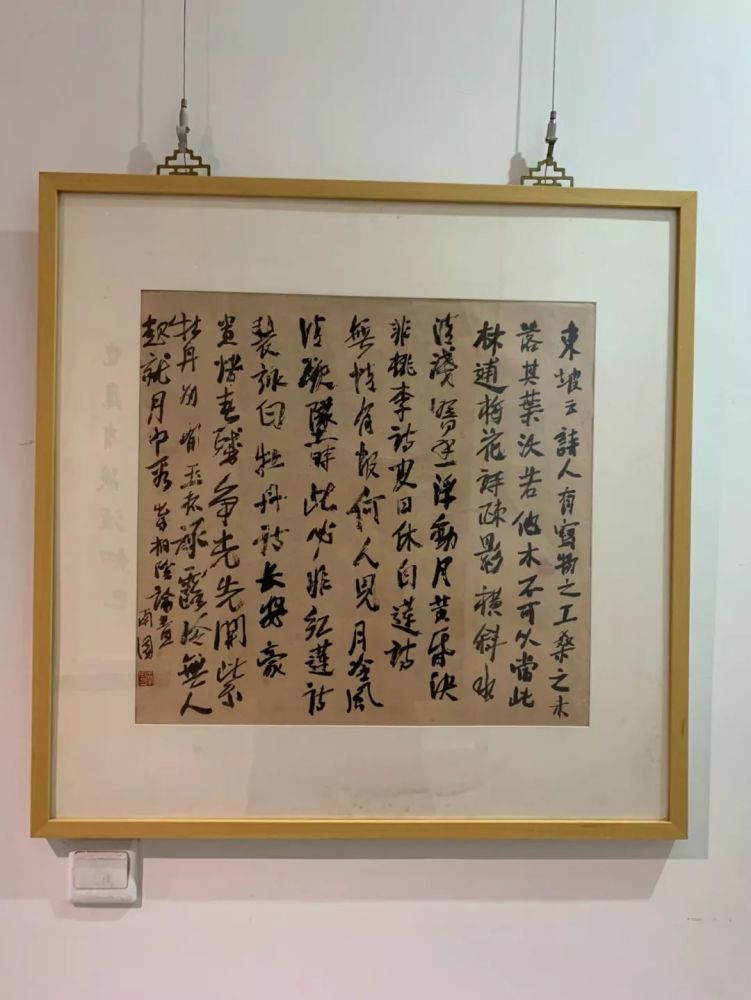 東坡云詩人有寫物之工桑之未
落其葉沃若他木不可以當此
林逋梅花詩疎影橫斜水
清淺暗香浮動月黃昏決
非桃李詩皮日休白蓮詩
無情有恨何人見月冷風
清欲墮時此必非紅蓮詩
裴詠白牡丹詩長安豪
貴惜春殘爭先先開紫
牡丹別有玉杯承露冷無人
起就月中看
南園